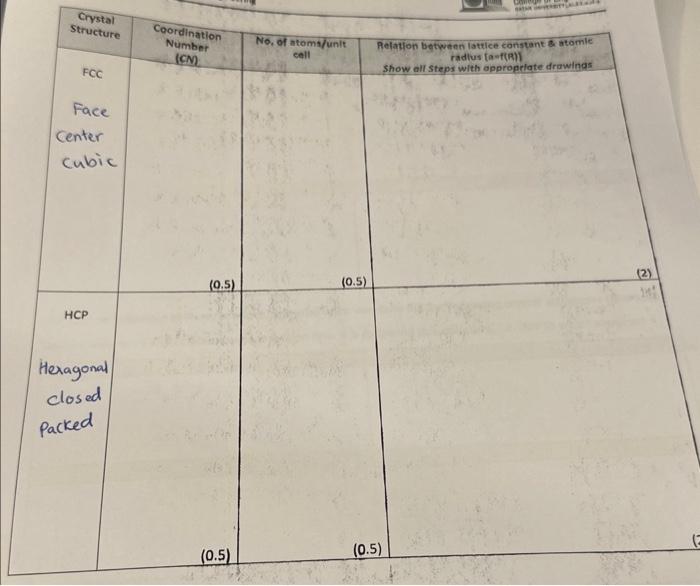 Crystal
Structure
Coordination
Number
(CN)
No. of atoms/unit
cell
Relation between lattice constant & atomic
radius [a=f(R)]
Show all Steps with appropriate drawings
FCC
Face
Center
Cubic
(0.5)
(0.5)
(2)
HCP
Hexagonal
closed
Packed
(0.5)
(0.5)